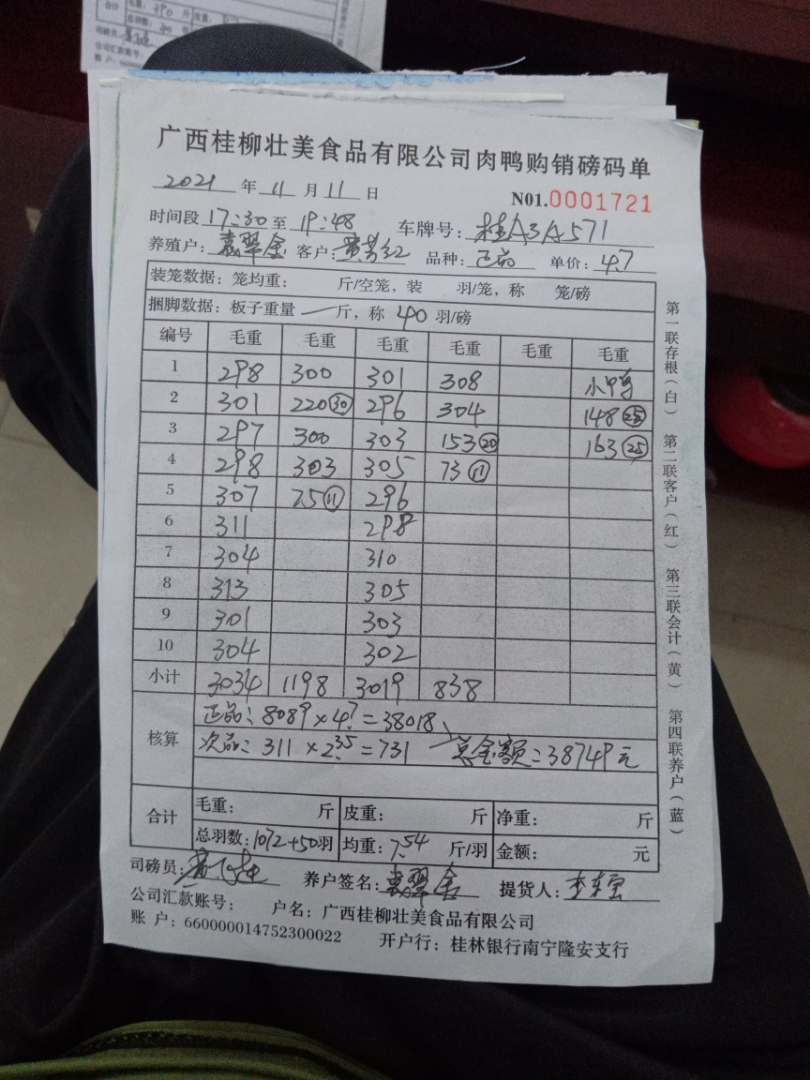 广西桂柳壮美食品有限公司肉鸭购销磅码单
2021 年 11 月 11 日 N01.0001721
时间段 17:30 至 19:48 车牌号: 桂A3A571
养殖户: 客户: 黄芳红 品种: 正品 单价: 4.7
装笼数据: 笼均重: 斤/空笼, 装 羽/笼, 称 笼/磅
捆脚数据: 板子重量 — 斤, 称 40 羽/磅
编号 毛重 毛重 毛重 毛重 毛重 毛重
1 298 300 301 308 小鸭
2 301 220㉚ 296 304 148㉕
3 297 300 303 153⑳ 163㉕
4 298 303 305 73⑪
5 307 75⑪ 296
6 311 298
7 304 310
8 313 305
9 301 303
10 304 302
小计 3034 1198 3019 838
核算 正品: 8089×4.7=38018
次品: 311×2.35=731 总金额=38749元
合计 毛重: 斤 皮重: 斤 净重: 斤
总羽数: 1072+50羽 均重: 7.54 斤/羽 金额: 元
司磅员: 养户签名: 提货人:
公司汇款账号: 户名: 广西桂柳壮美食品有限公司
账 户: 660000014752300022 开户行: 桂林银行南宁隆安支行
第一联存根(白) 第二联客户(红) 第三联会计(黄) 第四联养户(蓝)